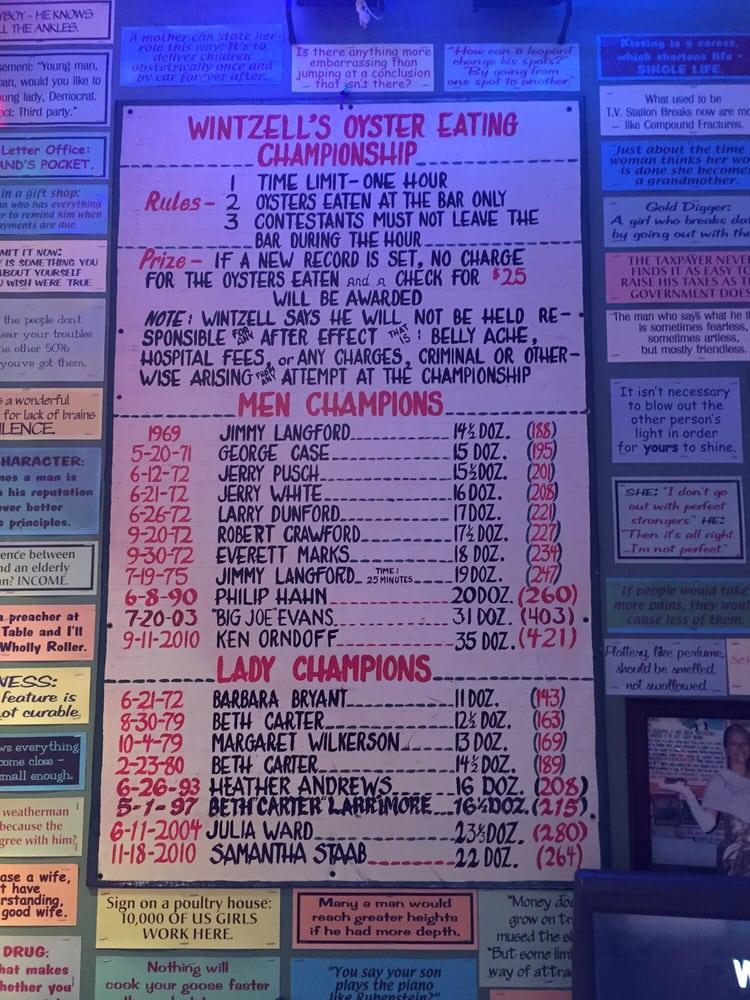 BOY - HE KNOWS
THE ANKLES.
A mother can state her
role this way: It's to
deliver children
obstetrically once and
by car forever after.
Is there anything more
embarrassing than
jumping at a conclusion
that isn't there?
"How can a leopard
change his spots?"
"By going from
one spot to another."
Kissing is a
which shortens life -
SINGLE LIFE.
"Young man,
would you like to
young lady, Democrat.
Third party."
What used to be
T.V. Station Breaks now are
– like Compound Fractures.
Letter Office:
POCKET.
Just about the time
woman thinks her
is done she becomes
a grandmother.
in a gift shop:
who has everything
to remind him when
payments are due.
Gold Digger:
A girl who breaks
by going out with
IT NOW:
IS SOMETHING YOU
ABOUT YOURSELF
WISH WERE TRUE.
THE TAXPAYER NEVER
FINDS IT AS EASY TO
RAISE HIS TAXES AS
GOVERNMENT DOES
the people don't
your troubles
other 50%
you've got them.
"The man who says what he
is sometimes fearless,
sometimes artless,
but mostly friendless.
a wonderful
for lack of brains
It isn't necessary
to blow out the
other person's
light in order
for yours to shine.
a man is
his reputation
better
principles.
SHE: "I don't go
out with perfect
strangers." HE:
"Then it's all right
I'm not perfect"
between
and an elderly
INCOME.
If people would take
more pains, they would
cause less of them.
preacher at
Table and I'll
Wholly Roller.
Flattery, like perfume,
should be smelled,
not swallowed
feature is
not curable.
everything
close –
small enough.
weatherman
because the
agree with him?
a wife,
have
good wife.
DRUG:
what makes
whether you
WINTZELL'S OYSTER EATING
CHAMPIONSHIP
Rules – 1 TIME LIMIT – ONE HOUR
2 OYSTERS EATEN AT THE BAR ONLY
3 CONTESTANTS MUST NOT LEAVE THE
BAR DURING THE HOUR
Prize – IF A NEW RECORD IS SET, NO CHARGE
FOR THE OYSTERS EATEN and a CHECK FOR $25
WILL BE AWARDED
NOTE: WINTZELL SAYS HE WILL NOT BE HELD RE-
SPONSIBLE FOR ANY AFTER EFFECT THAT IS: BELLY ACHE,
HOSPITAL FEES, or ANY CHARGES, CRIMINAL OR OTHER-
WISE ARISING FROM ANY ATTEMPT AT THE CHAMPIONSHIP
MEN CHAMPIONS
1969 JIMMY LANGFORD 14½ DOZ. (188)
5-20-71 GEORGE CASE 15 DOZ. (195)
6-12-72 JERRY PUSCH 15½ DOZ. (201)
6-21-72 JERRY WHITE 16 DOZ. (208)
6-26-72 LARRY DUNFORD 17 DOZ. (221)
9-20-72 ROBERT CRAWFORD 17½ DOZ. (227)
9-30-72 EVERETT MARKS 18 DOZ. (234)
7-19-75 JIMMY LANGFORD TIME: 25 MINUTES 19 DOZ. (247)
6-8-90 PHILIP HAHN 20 DOZ. (260)
7-20-03 "BIG JOE" EVANS 31 DOZ. (403)
9-11-2010 KEN ORNDOFF 35 DOZ. (421)
LADY CHAMPIONS
6-21-72 BARBARA BRYANT 11 DOZ. (143)
8-30-79 BETH CARTER 12½ DOZ. (163)
10-4-79 MARGARET WILKERSON 13 DOZ. (169)
2-23-80 BETH CARTER 14½ DOZ. (189)
6-26-93 HEATHER ANDREWS 16 DOZ. (208)
5-1-97 BETH CARTER LARRIMORE 16½ DOZ. (215)
6-11-2004 JULIA WARD 23⅓ DOZ. (280)
11-18-2010 SAMANTHA STAAB 22 DOZ. (264)
Sign on a poultry house:
10,000 OF US GIRLS
WORK HERE.
Many a man would
reach greater heights
if he had more depth.
"Money
grow on
mused the
"But some
way of
Nothing will
cook your goose faster
"You say your son
plays the piano
like Rubenstein?"
W